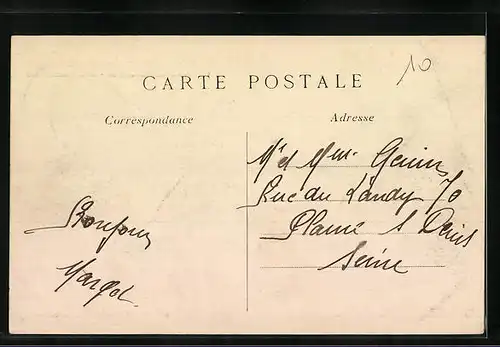 10
CARTE POSTALE
Correspondance
Adresse
Mr et Mme
Rue du Landy 70
Plaine St Denis
Seine
Bonjour
Margot.